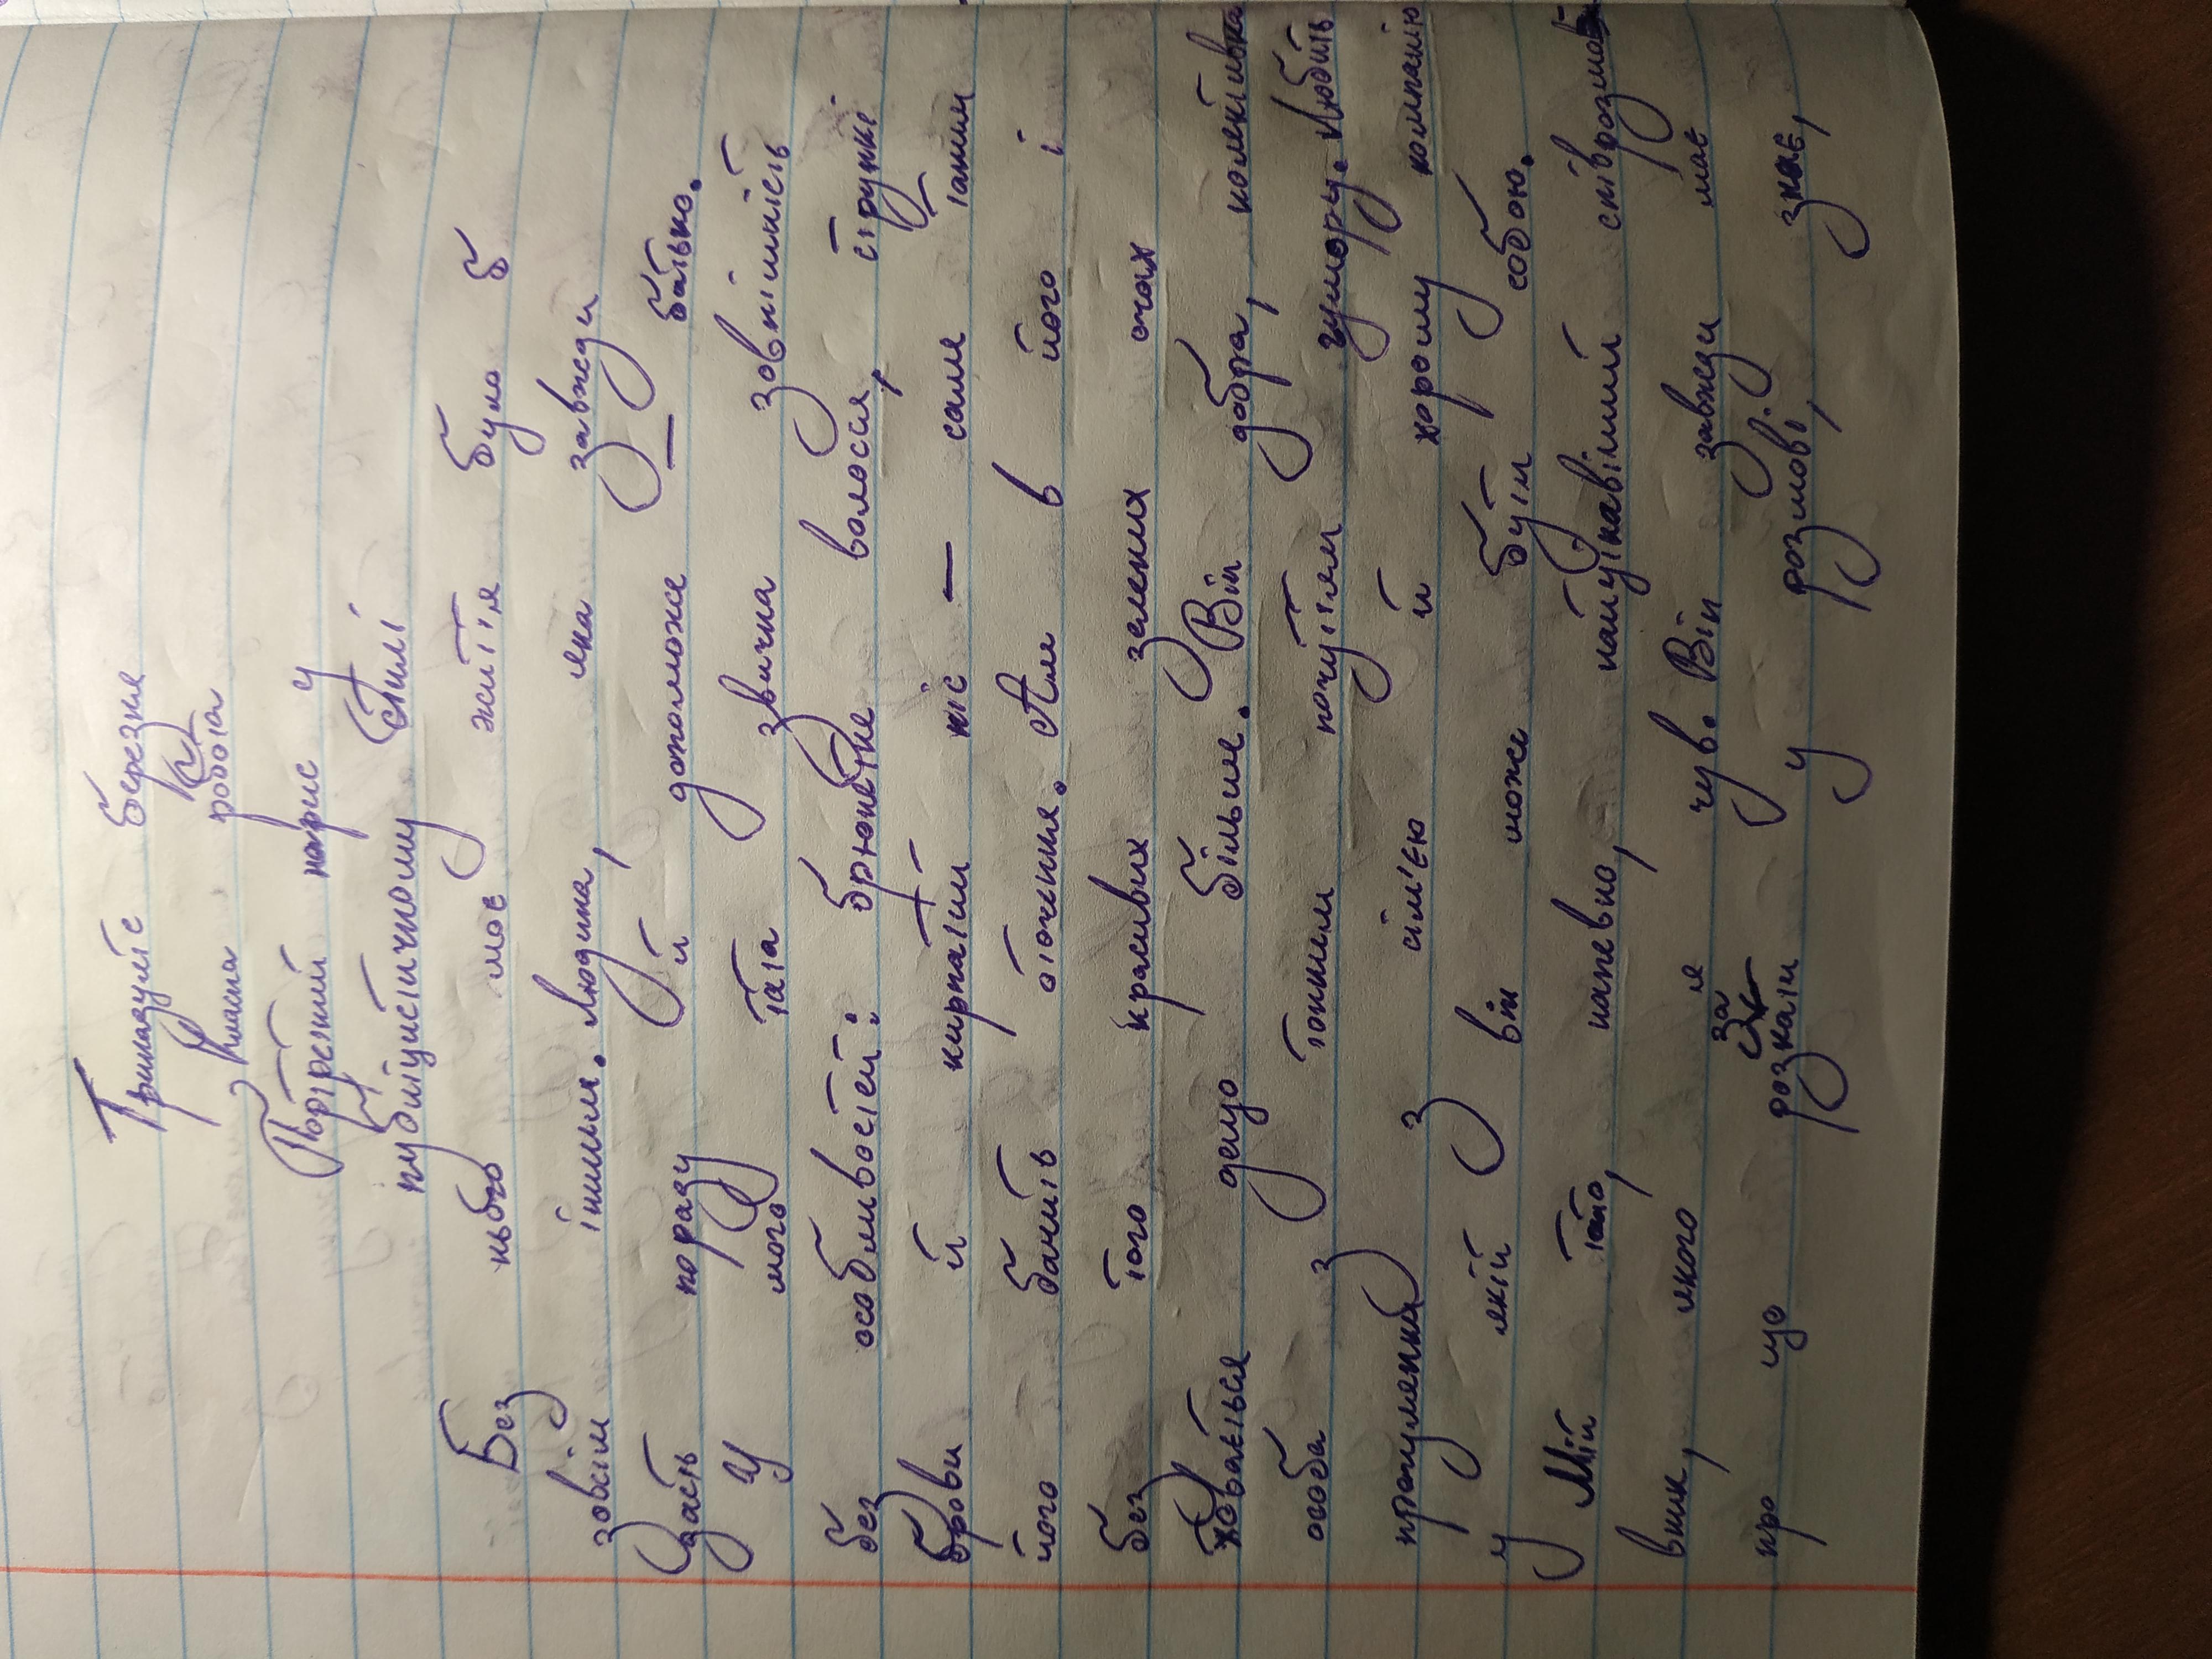 Тринадцяте березня
Класна робота
Портретний нарис у
публіцистичному стилі
Без нього моє життя було б
зовсім іншим. Людина, яка завжди
дасть пораду й допоможе – батько.
У мого тата звична зовнішність
без особливостей: брюнетне волосся, стрункі
брови й кирпатий ніс – саме таким
його бачить оточення. Але в його і
без того красивих зелених очах
ховається дещо більше. Він добра, комунікативна
особа з тонким почуттям гумору. Любить
прогулянки з сім'єю й хорошу компанію
у якій він може бути собою.
Мій тато, напевно, найцікавіший співрозмов
вник, якого я чув. Він завжди має
про що розказати у розмові, знає,